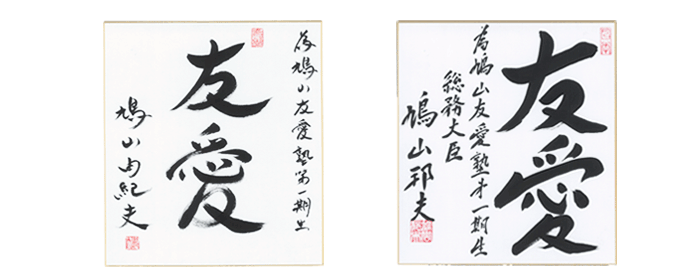 為鳩山友愛塾第一期生
友愛
鳩山由紀夫
友愛
為鳩山友愛塾才一期生
総務大臣
鳩山邦夫